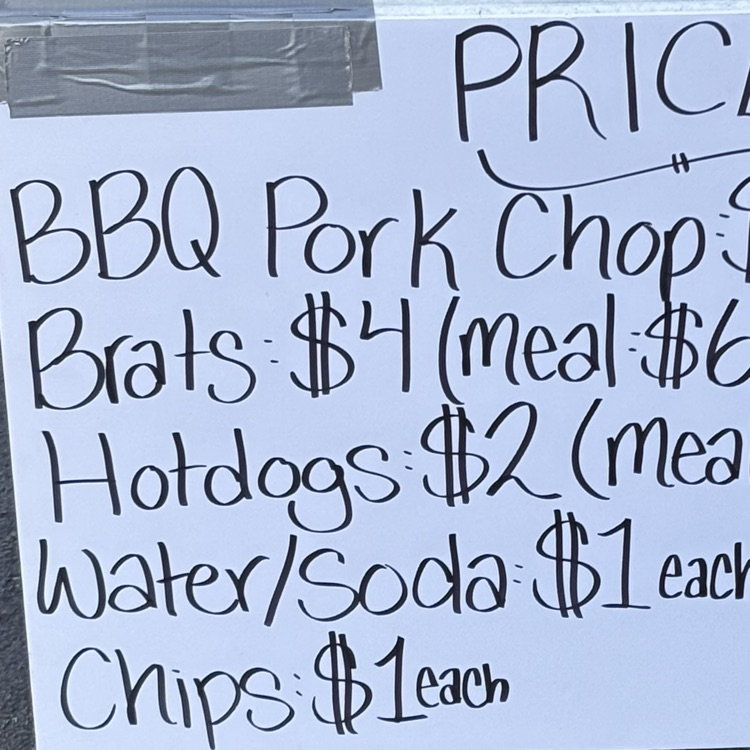 PRIC
BBQ Pork Chop: $
Brats: $4 (meal: $6
Hotdogs: $2 (mea
Water/Soda: $1 each
Chips: $1 each